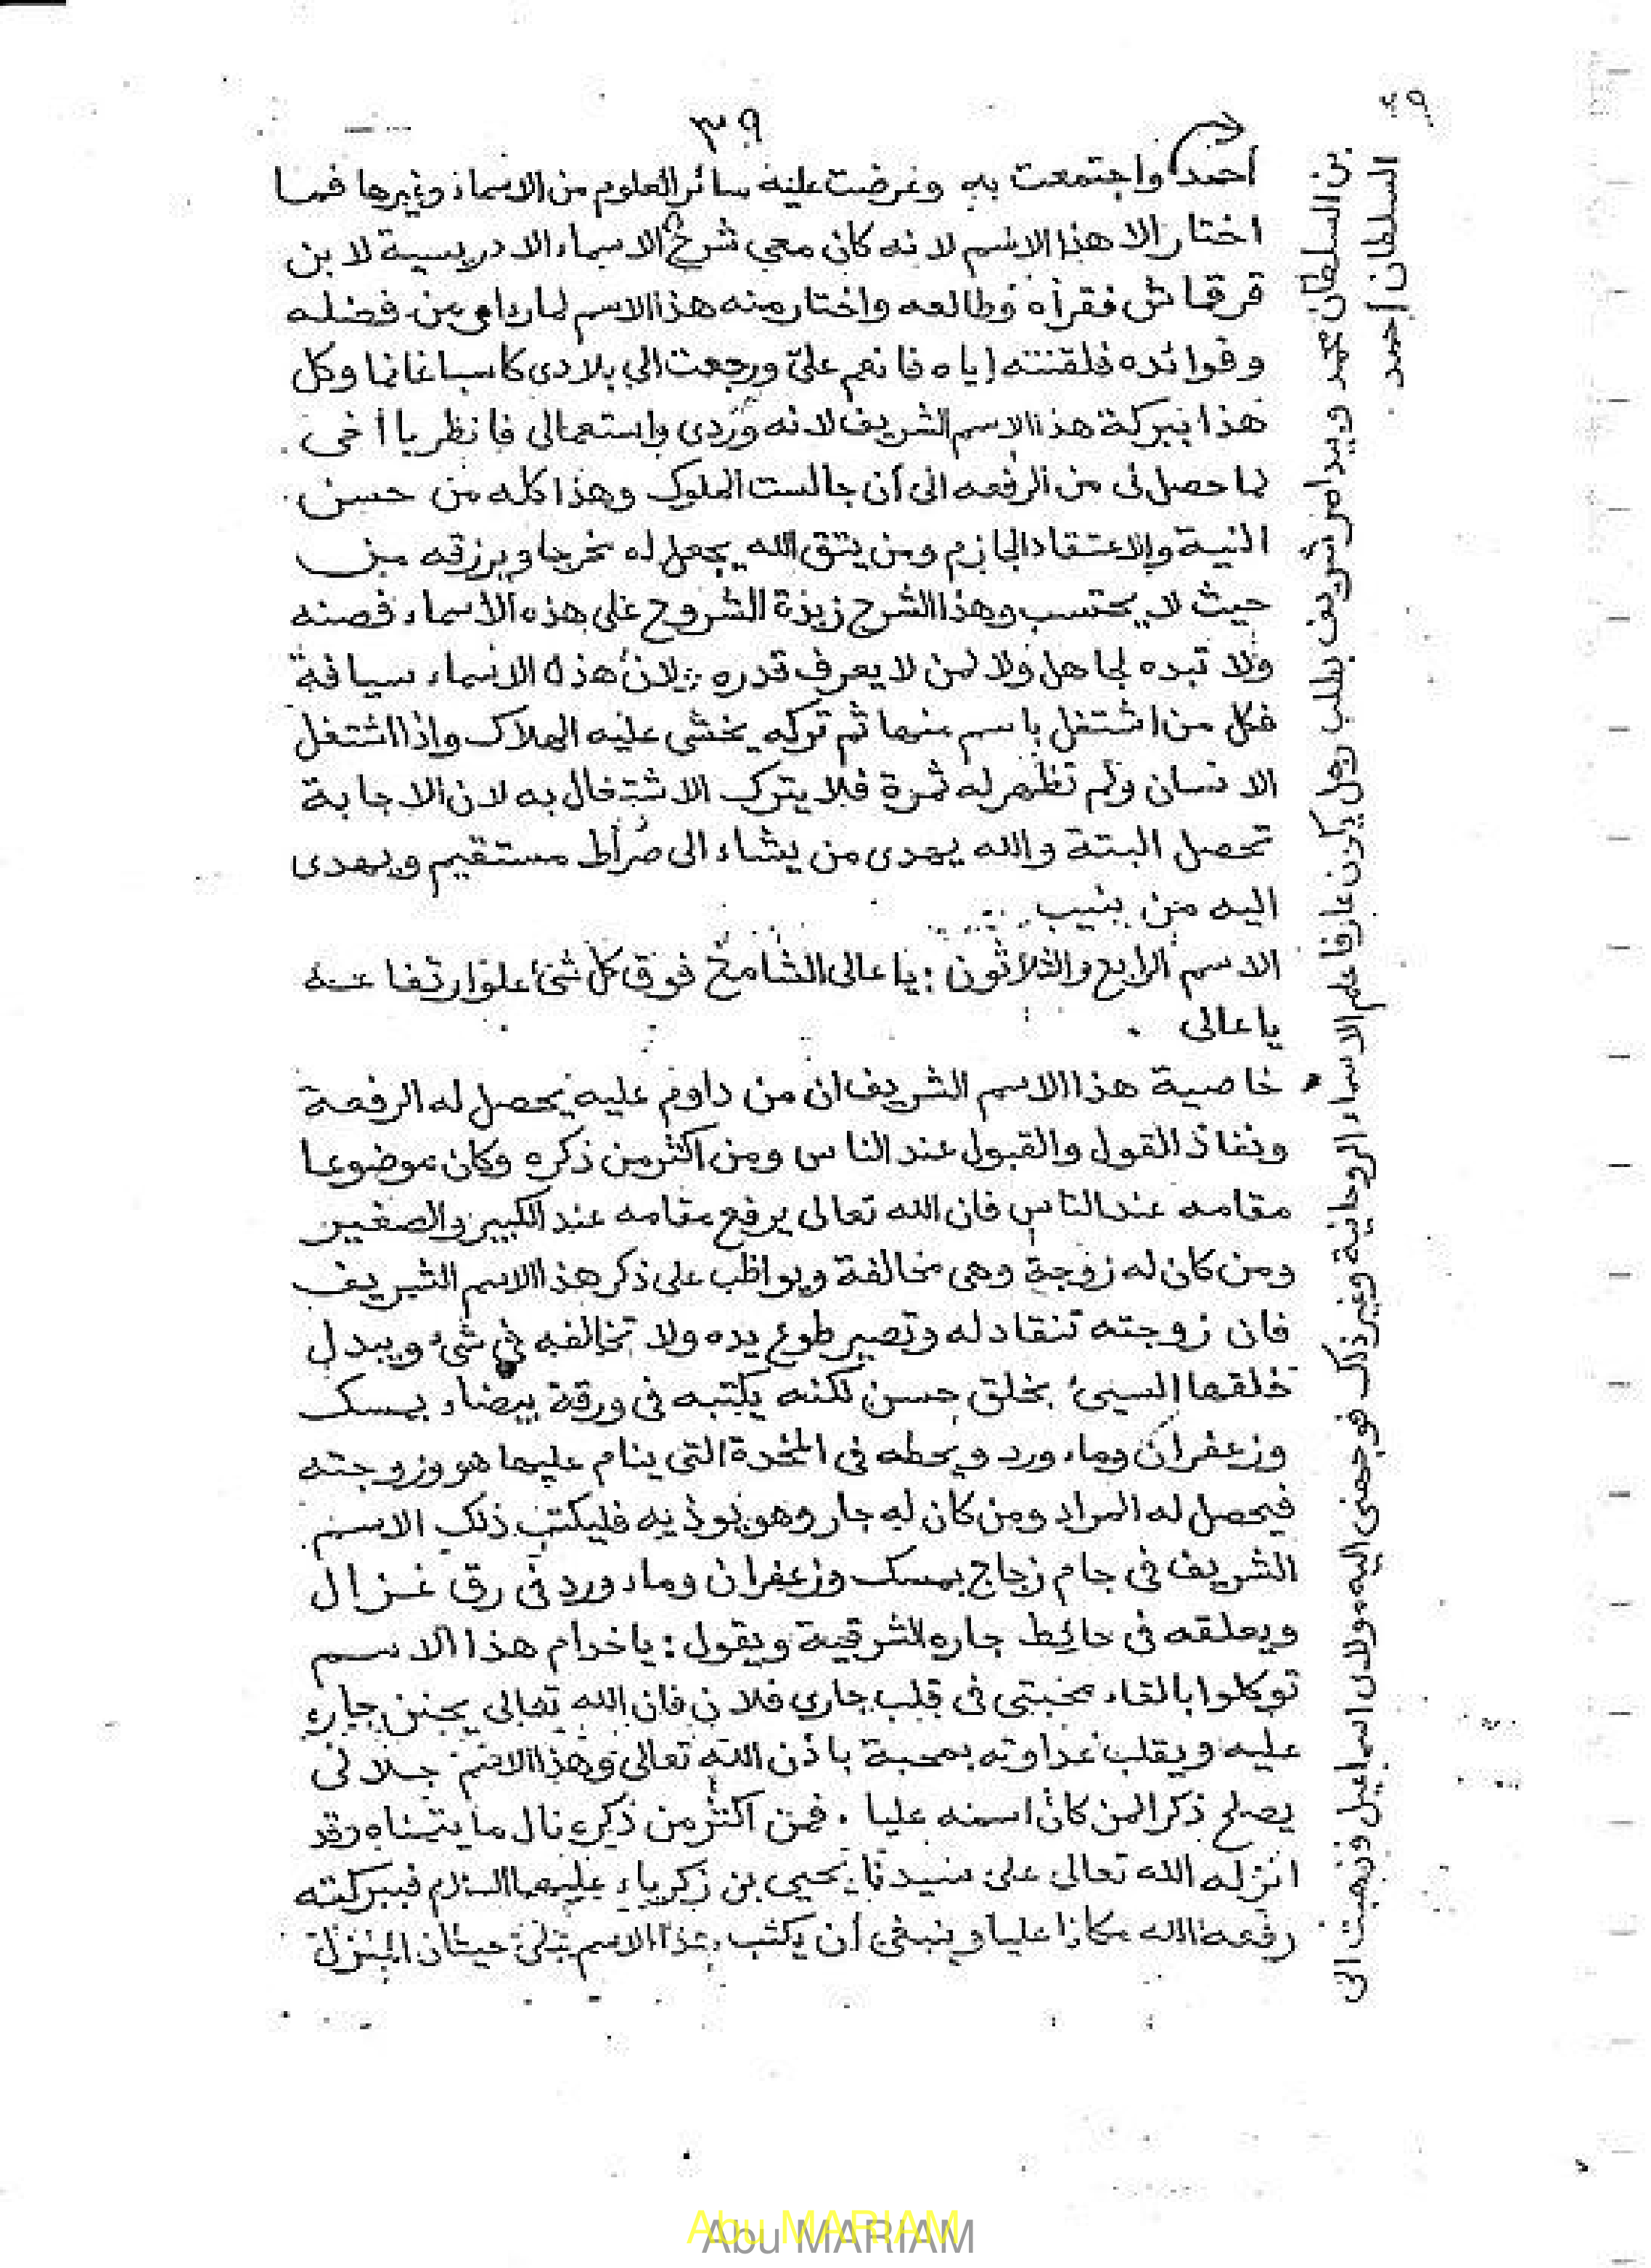 ٣٩
أحمد واجتمعت به وعرضت عليه سائر العلوم من الاسماء وغيرها فما
اختار الا هذا الاسم لانه كان معى شرح الاسماء الادريسية لابن
قرقماش فقرأه وطالعه واختار منه هذا الاسم لما رداى من فضله
وفوائده فلقنته إياه فانعم علىّ ورجعت الى بلادى كاسبا غانما وكل
هذا ببركة هذا الاسم الشريف لانه وردى واستعمالى فانظر يا أخى
لما حصل لى من الرفعه الى أن جالست الملوك وهذا كله من حسن
النية والاعتقاد الجازم ومن يتق الله يجعل له مخرجا ويرزقه من
حيث لا يحتسب وهذا الشرح زبدة الشروح على هذه الأسماء فصنه
ولا تبده لجاهل ولا لمن لا يعرف قدره لان هذه الاسماء سيافة
فكل من اشتغل باسم منها ثم تركه يخشى عليه الهلاك واذا اشتغل
الانسان ولم تظهر له ثمرة فلا يترك الاشتغال به لان الاجابة
تحصل البتة والله يهدى من يشاء الى صراط مستقيم ويهدى
اليه من ينيب
الاسم الرابع والثلاثون : يا عالى الشامخ فوق كل شئ علوارتفاعه
يا عالى .
خاصية هذا الاسم الشريف ان من داوم عليه يحصل له الرفعة
ونفاذ القول والقبول عند الناس ومن اكثر من ذكره وكان موضوعا
مقامه عند الناس فان الله تعالى يرفع مقامه عند الكبير والصغير
ومن كان له زوجة وهى مخالفة ويواظب على ذكر هذا الاسم الشريف
فان زوجته تنقاد له وتصير طوع يده ولا تخالفه في شئ ويبدل
خلقها السيئ بخلق حسن لكنه يكتبه فى ورقة بيضاء بمسك
وزعفران وماء ورد ويحطه فى المخدة التى ينام عليها هو وزوجته
فيحصل له المراد ومن كان له جار وهو يوذيه فليكتب ذلك الاسم
الشريف فى جام زجاج بمسك وزعفران وماء ورد فى رق غزال
ويعلقه فى حائط جاره الشرقية ويقول : يا خدام هذا الاسم
توكلوا بالقاء محبتى فى قلب جارى فلان فان الله تعالى يحنن جاره
عليه ويقلب عداوته بمحبة باذن الله تعالى وهذا الاسم جلالى
يصلح ذكرا لمن كان اسمه عليا . فمن اكثر من ذكره نال ما يتمناه وقد
انزله الله تعالى على سيدنا يحيى بن زكرياء عليهما السلام فببركته
رفعه الله مكانا عليا وينبغى أن يكتب هذا الاسم على حيطان المنزل
بن السلطان محمد وبيده امر شريف بطلب رجل يكون عارفا علم الاسماء الروحانية وغير ذلك فوجهنى اليه مولاى اسماعيل وذهبت الى
السلطان أحمد
Abu MARIAM
Abu MARIAM